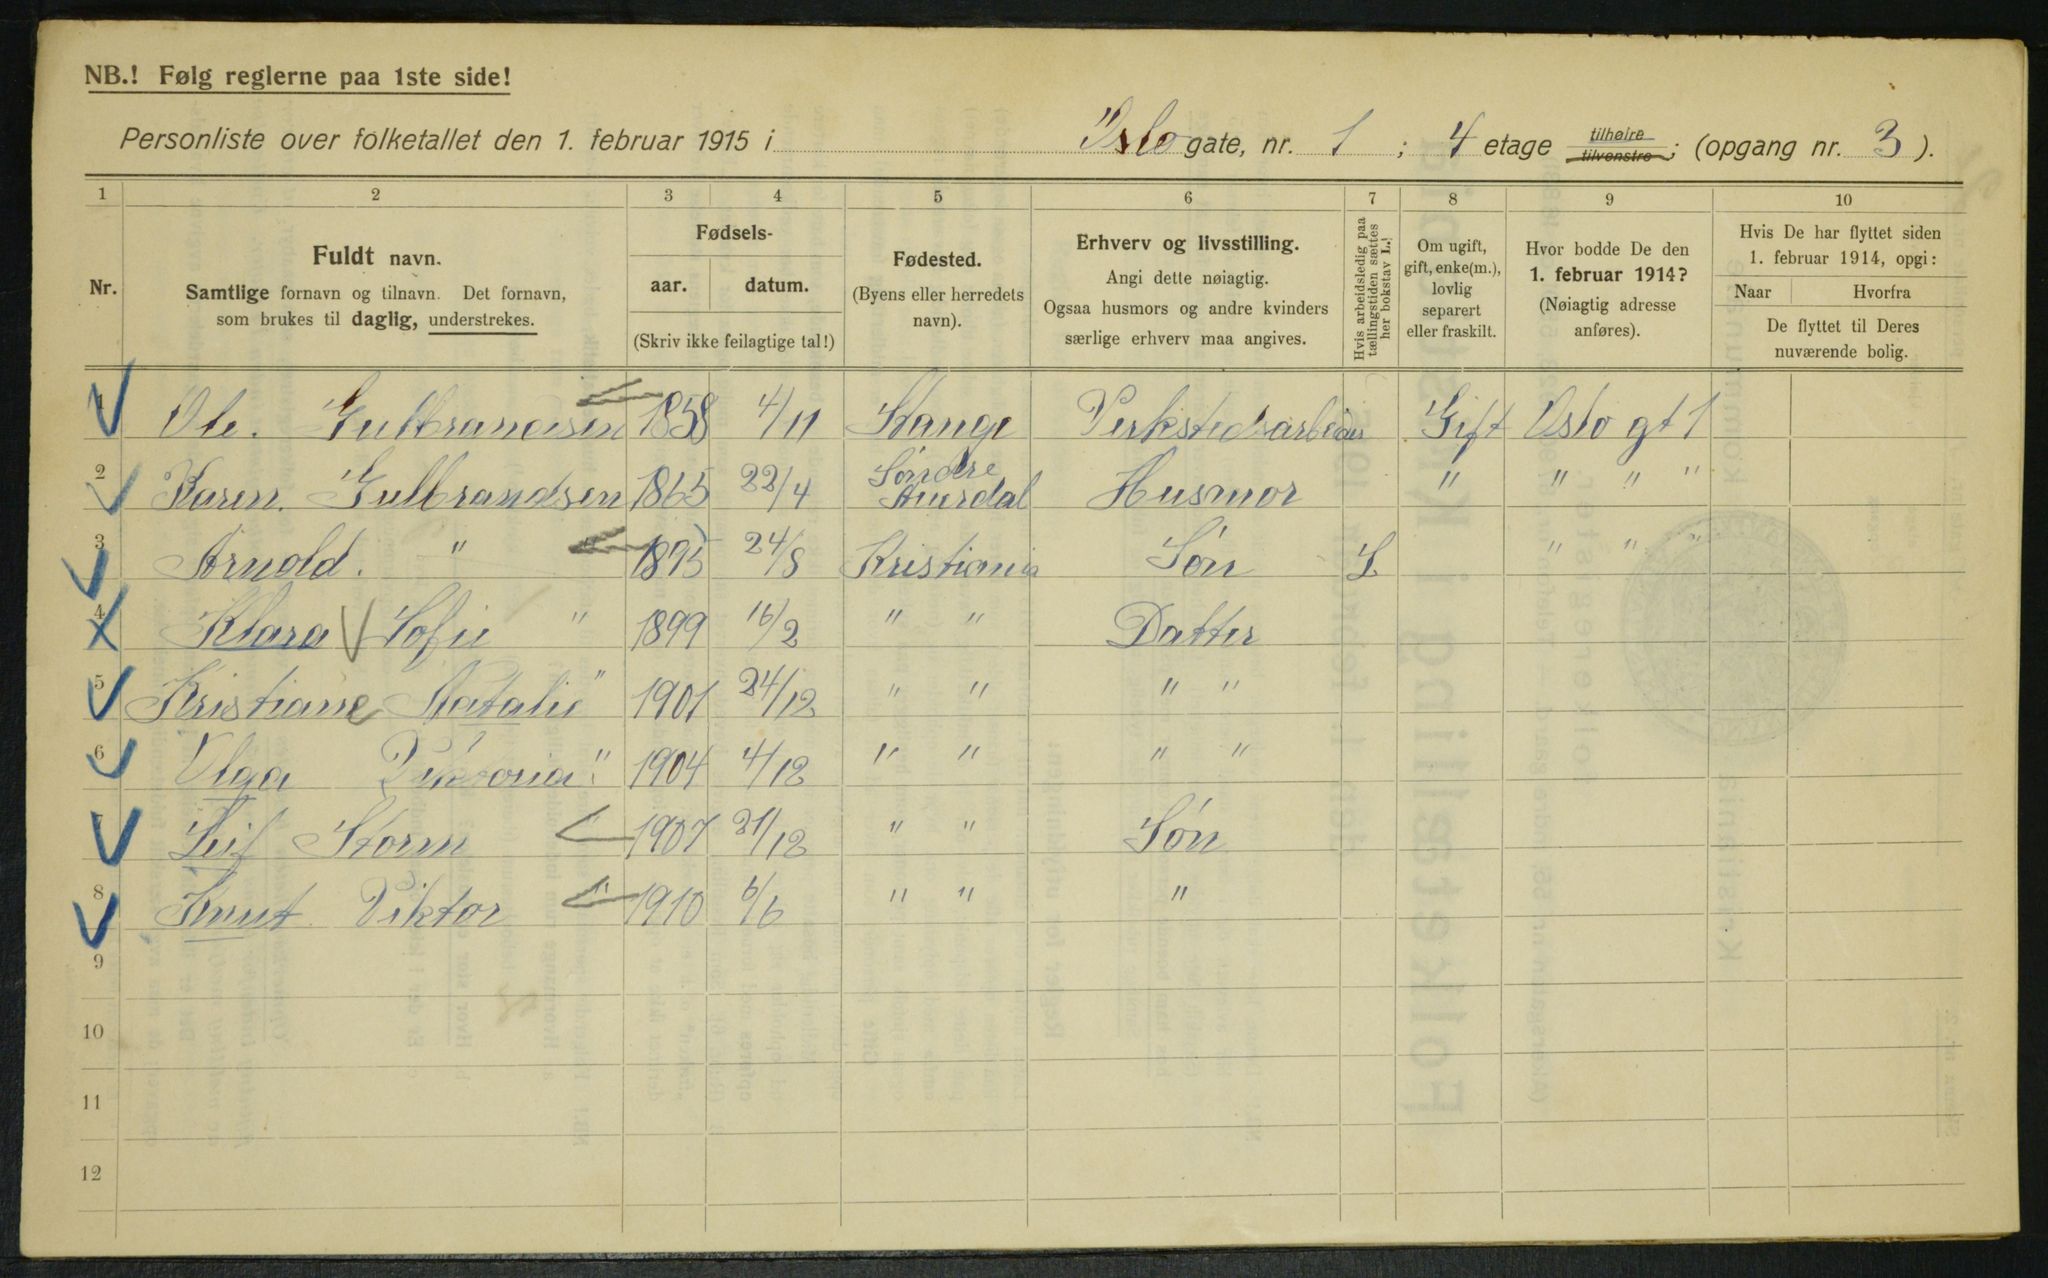 NB.! Følg reglerne paa 1ste side!
Personliste over folketallet den 1. februar 1915 i Oslo gate, nr. 1 ; 4 etage tilhøire tilvenstre ; (opgang nr. 3 ).
1 2 3 4 5 6 7 8 9 10
Nr.
Fuldt navn.
Samtlige fornavn og tilnavn. Det fornavn,
som brukes til daglig, understrekes.
Fødsels-
aar. datum.
(Skriv ikke feilagtige tal!)
Fødested.
(Byens eller herredets
navn).
Erhverv og livsstilling.
Angi dette nøiagtig.
Ogsaa husmors og andre kvinders
særlige erhverv maa angives.
Hvis arbeidsledig paa
tællingstiden sættes
her bokstav L.!
Om ugift,
gift, enke(m.),
lovlig
separert
eller fraskilt.
Hvor bodde De den
1. februar 1914?
(Nøiagtig adresse
anføres).
Hvis De har flyttet siden
1. februar 1914, opgi:
Naar Hvorfra
De flyttet til Deres
nuværende bolig.
1 Ole. Gulbrandsen 1858 4/11 Stange Verkstedsarbeider Gift Oslo gt 1
2 Karen. Gulbrandsen 1865 22/4 Søndre Aurdal Husmor " " " "
3 Arnold. " 1895 24/8 Kristiania Søn L " " "
4 Klara Sofie " 1899 16/2 " " Datter
5 Kristiane Natalie " 1901 24/12 " " " "
6 Olga Viktoria " 1904 4/12 " " " "
7 Leif Storm 1907 21/12 " " Søn
8 Knut Viktor " 1910 6/6 " " "
9
10
11
12